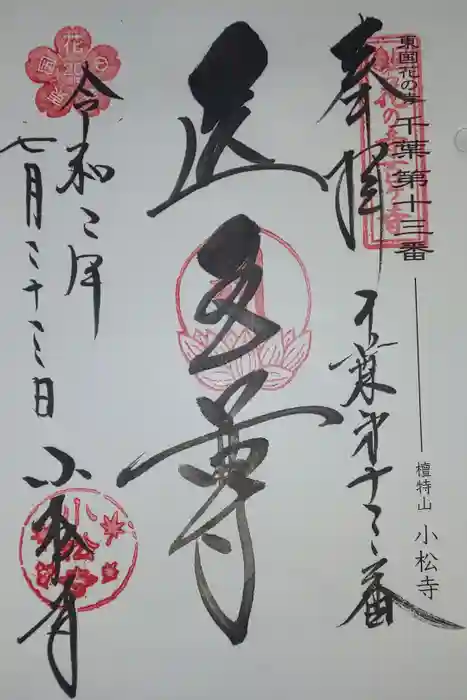 東国花の寺 千葉第十三番
檀特山 小松寺
奉拝
千葉第十三番
医王尊
令和二年
七月二十三日
小松寺
小松寺